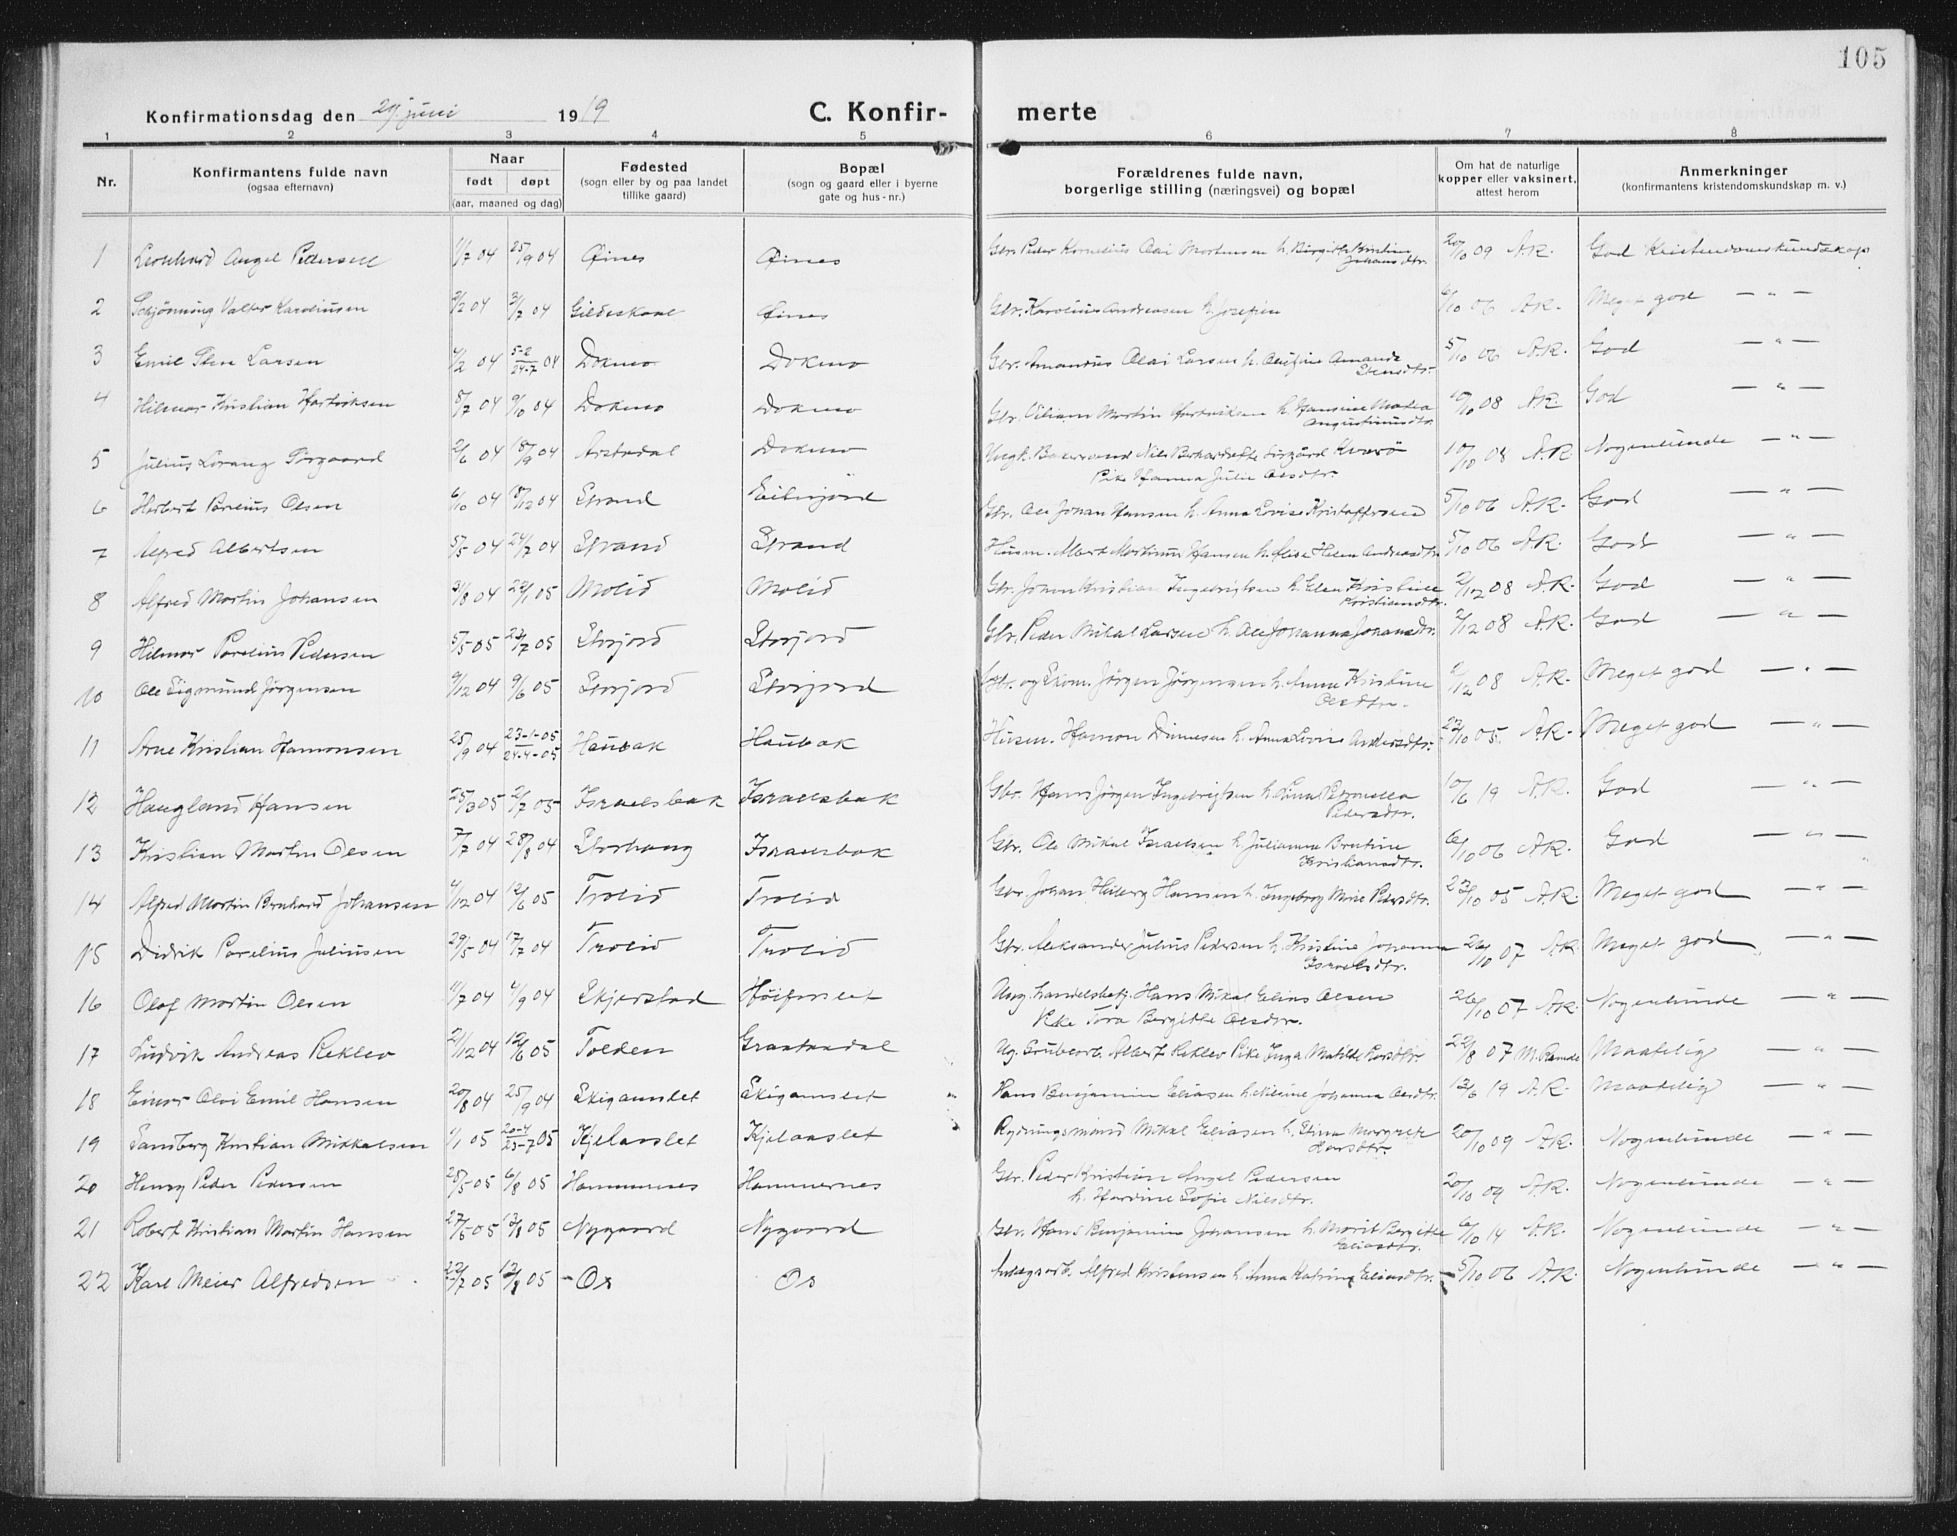 105
Konfirmationsdag den 29. juni 1919
C. Konfir- merte
1 2 3 4 5 6 7 8
Nr.
Konfirmantens fulde navn
(ogsaa efternavn)
Naar
født døpt
(aar, maaned og dag)
Fødested
(sogn eller by og paa landet
tillike gaard)
Bopæl
(sogn og gaard eller i byerne
gate og hus-nr.)
Forældrenes fulde navn,
borgerlige stilling (næringsvei) og bopæl
Om hat de naturlige
kopper eller vaksinert,
attest herom
Anmerkninger
(konfirmantens kristendomskundskap m. v.)
1 Leonhard Angel Pedersen 1/7 04 25/9 04 Øines Øines Gbr. Peder Kornelius Olai Mortensen h. Birgitte Kristine Johansdtr. 20/10 09 A.R. God Kristendomskundskap
2 Schjønning Valter Karoliussen 04 3/7 04 Gildeskaal Øines Gbr. Karolius Andreasen h. Josefine 6/10 06 A.R. Meget god — " —
3 Emil Sten Larsen 04 5-2/24-7 04 Dokmo Dokmo Gbr. Amandus Olai Larsen h. Amanda Stensdtr. 5/10 06 A.R. God — " —
4 Hilmar Kristian Hartviksen 5/7 04 9/10 04 Dokmo Dokmo Gbr. Martin Hartviksen h. Hansine Augustinusdtr. 10/10 08 A.R. God — " —
5 Julius Lorang Sirgaard 2/6 04 18/9 04 Arstadal Dokmo Ungk. Nils Kvarø Pike Hanna Julie Olsdtr. 10/10 08 A.R. Nogenlunde — " —
6 Herbert Parelius Olsen 6/10 04 18/12 04 Strand Eilinjord Gbr. Ole Johan Hansen h. Anna Lovise Kristoffersen 5/10 06 A.R. God — " —
7 Alfred Albertsen 5/5 04 24/7 04 Strand Strand Husm. Albert Martinus Hansen h. Helen Andreasdtr. 5/10 06 A.R. God — " —
8 Alfred Martin Johansen 31/8 04 22/1 05 Molid Molid Gbr. Johan Kristian Ingebrigtsen h. Elen Kristine Kristiansdtr. 2/12 08 A.R. God — " —
9 Hilmar Parelius Pedersen 5/5 05 23/7 05 Storjord Storjord Gbr. Peder Mikal Larsen h. Johanna Johansdtr. 2/12 08 A.R. God — " —
10 Ole Sigmund Jørgensen 9/12 04 9/6 05 Storjord Storjord Gbr. og Skom. Jørgen Jørgensen h. Anna Kristine Olsdtr. 2/12 08 A.R. Meget god — " —
11 Arne Kristian Hamonsen 25/9 04 23-1-05/24-4-05 Haubak Haubak Husm. Hamon h. Anna Lovise Andersdtr. 23/10 05. A.R. Meget god — " —
12 Haugland Hansen 25/3 05 2/7 05 Israelsbak Israelsbak Gbr. Hans Jørgen Ingebrigtsen h. Petronella Pedersdtr. 10/6 19 A.R. God — " —
13 Kristian Martin Olsen 7/7 04 28/8 04 Storhaug Israelsbak Gbr. Ole Mikal Israelsen h. Julianna Kristiansdtr. 6/10 06 A.R. God — " —
14 Alfred Martin Bernhard Johansen 4/12 04 12/6 05 Trolid Trolid Gbr. Johan Hansen h. Ingeborg Marie Pedersdtr. 23/10 05 A.R. Meget god — " —
15 Didrik Parelius Juliussen 29/5 04 17/7 04 Trolid Trolid Gbr. Aleksander Julius Pedersen h. Kristine Johanna Israelsdtr. 26/10 07 A.R. Meget god — " —
16 Olaf Martin Olsen 11/7 04 4/9 04 Skjerstad Høiforslet Ung. handelsbetj. Hans Mikal Elias Olsen Pike Tora Bergitte Olsdtr. 26/10 07 A.R. Nogenlunde — " —
17 Ludvik Andreas Reklev 21/12 04 12/6 05 Tolden Graataadal Ug. Grubearb. Albert Reklev Pike Inga Matilde Larsdtr. 22/8 07 M. Ramde Maadelig — " —
18 Einar Olvi Emil Hansen 20/8 04 25/9 04 Skigamslet Skigamslet Hans Benjamin Eliasen h. Johanna Olsdtr. 13/6 19 A.R. Maadelig — " —
19 Sandberg Kristian Mikkalsen 1/1 05 20-4/23-7 05 Kjelaaslet Kjelaaslet Rydningsmand Mikal Eliasen h. Stina Margrete Larsdtr. 20/10 09 A.R. Nogenlunde — " —
20 Henry Peder Pedersen 28/5 05 6/8 05 Hammernes Hammernes Gbr. Peder Kristian Angel Pedersen h. Hardine Sofie Nilsdtr. 20/10 09 A.R. Nogenlunde — " —
21 Robert Kristian Martin Hansen 27/5 05 13/8 05 Nygaard Nygaard Gbr. Hans Benjamin Johansen h. Marit Bergitte Eliasdtr. 6/10 14 A.R. Nogenlunde — " —
22 Karl Meier Alfredsen 22/7 05 13/8 05 Os Os Anlægsarb. Alfred Kristensen h. Anna Katrine Eliasdtr. 5/10 06 A.R. Nogenlunde — " —